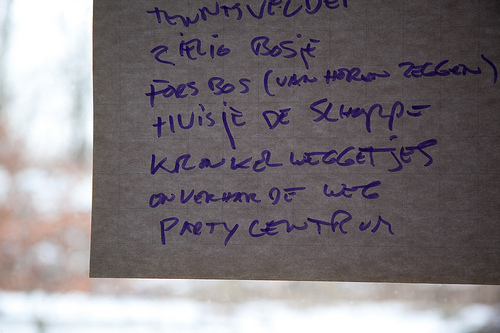 TENNISVELDEN
ZIELIG BOSJE
FORS BOS (VAN HOREN ZEGGEN)
HUISJE DE SCHAPPE
KRONKELWEGGETJES
ONVERHARDE WEG
PARTYCENTRUM